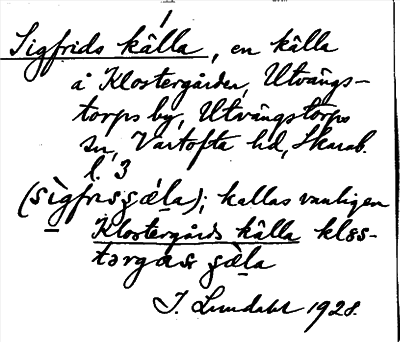 Sigfrids källa, en källa
å Klostergården, Utvängs-
torps by, Utvängstorps
sn, Vartofta hd, Skarab.
l. 3
(sìgfrisçɛ̀la); kallas vanligen
Klostergårds källa kləs-
tərgɑs çɛ̀la
J. Lundahl 1928.